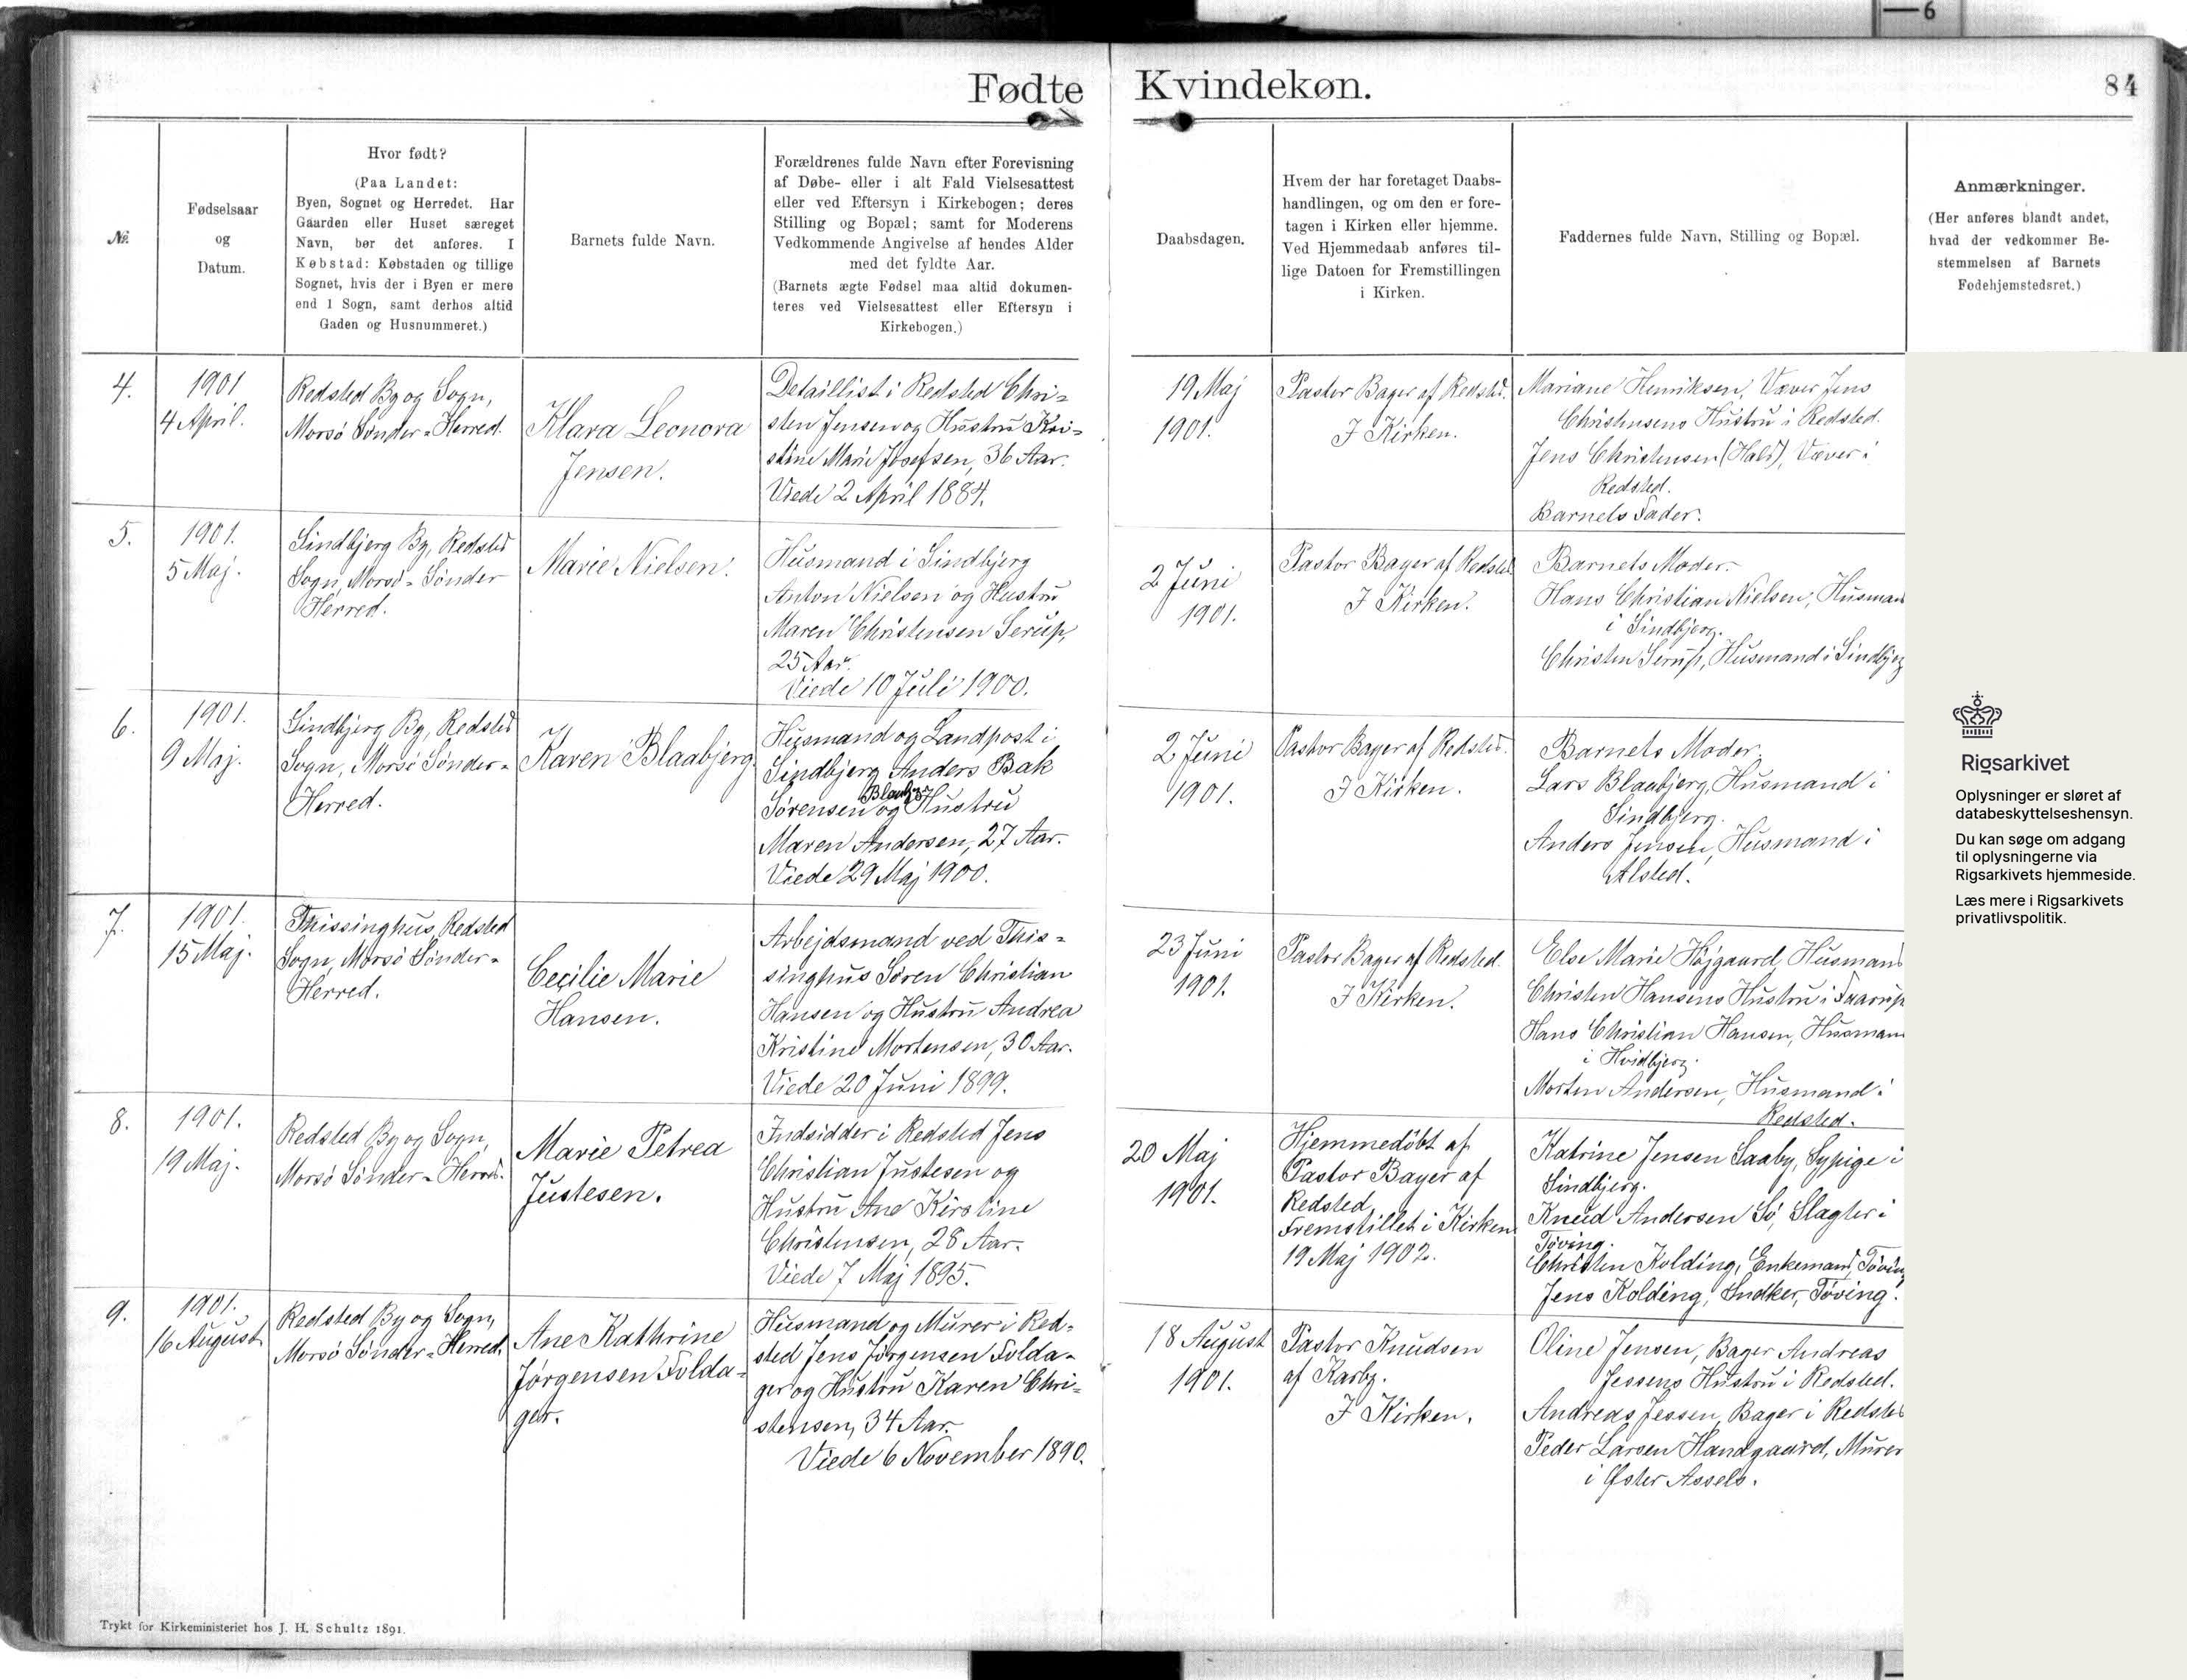 6
Fødte Kvindekøn.
84
№.
Fødselsaar
og
Datum.
Hvor født?
(Paa Landet:
Byen, Sognet og Herredet. Har
Gaarden eller Huset særeget
Navn, bør det anføres. I
Købstad: Købstaden og tillige
Sognet, hvis der i Byen er mere
end 1 Sogn, samt derhos altid
Gaden og Husnummeret.)
Barnets fulde Navn.
Forældrenes fulde Navn efter Forevisning
af Døbe- eller i alt Fald Vielsesattest
eller ved Eftersyn i Kirkebogen; deres
Stilling og Bopæl; samt for Moderens
Vedkommende Angivelse af hendes Alder
med det fyldte Aar.
(Barnets ægte Fødsel maa altid dokumen-
teres ved Vielsesattest eller Eftersyn i
Kirkebogen.)
Daabsdagen.
Hvem der har foretaget Daabs-
handlingen, og om den er fore-
tagen i Kirken eller hjemme.
Ved Hjemmedaab anføres til-
lige Datoen for Fremstillingen
i Kirken.
Faddernes fulde Navn, Stilling og Bopæl.
Anmærkninger.
(Her anføres blandt andet,
hvad der vedkommer Be-
stemmelsen af Barnets
Fødehjemstedsret.)
4.
1901
4 April.
Redsted By og Sogn,
Morsø Sønder-Herred.
Klara Leonora
Jensen.
Detaillist i Redsted Chri-
sten Jensen og Hustru Kri-
stine Marie Josefsen, 36 Aar.
Viede 2 April 1884.
19 Maj
1901.
Pastor Bager af Redsted.
I Kirken.
Mariane Henriksen, Væver Jens
Christensens Hustru i Redsted.
Jens Christensen (Hald), Væver i
Redsted.
Barnets Fader.
5.
1901.
5 Maj.
Sindbjerg By, Redsted
Sogn, Morsø-Sønder
Herred.
Marie Nielsen.
Husmand i Sindbjerg
Anton Nielsen og Hustru
Maren Christensen Serup,
25 Aar.
Viede 10 Juli 1900.
2 Juni
1901.
Pastor Bager af Redsted
I Kirken.
Barnets Moder.
Hans Christian Nielsen, Husman
i Sindbjerg.
Christen Serup, Husmand i Sindbjerg
6.
1901.
9 Maj.
Sindbjerg By, Redsted
Sogn, Morsø Sønder-
Herred.
Karen Blaabjerg
Husmand og Landpost i
Sindbjerg Anders Bak
Blaabjerg
Sørensen og Hustru
Maren Andersen, 27 Aar.
Viede 29 Maj 1900.
2 Juni
1901.
Pastor Bager af Redsted.
I Kirken.
Barnets Moder.
Lars Blaabjerg, Husmand i
Sindbjerg.
Anders Jensen, Husmand i
Alsted.
7.
1901.
15 Maj.
Thissinghus, Redsted
Sogn, Morsø Sønder-
Herred.
Cecilie Marie
Hansen.
Arbejdsmand ved This-
singhus Søren Christian
Hansen og Hustru Andrea
Kristine Mortensen, 30 Aar.
Viede 20 Juni 1899.
23 Juni
1901.
Pastor Bager af Redsted.
I Kirken.
Else Marie Højgaard, Husmand
Christen Hansens Hustru i Faarup
Hans Christian Hansen, Husman
i Hvidbjerg.
Morten Andersen, Husmand i
Redsted.
8.
1901.
19 Maj.
Redsted By og Sogn,
Morsø Sønder-Herred.
Marie Petrea
Justesen.
Indsidder i Redsted Jens
Christian Justesen og
Hustru Ane Kirstine
Christensen, 28 Aar.
Viede 7 Maj 1895.
20 Maj
1901.
Hjemmedøbt af
Pastor Bager af
Redsted,
Fremstillet i Kirken
19 Maj 1902.
Katrine Jensen Saaby, Sypige i
Sindbjerg.
Knud Andersen Sø, Slagter i
Tøving.
Christen Kolding, Enkemand, Tøving
Jens Kolding, Indker, Tøving.
9.
1901.
16 August
Redsted By og Sogn,
Morsø Sønder-Herred.
Ane Kathrine
Jørgensen Folda-
ger.
Husmand og Murer i Red-
sted Jens Jørgensen Folda-
ger og Hustru Karen Chri-
stensen, 34 Aar.
Viede 6 November 1890.
18 August
1901.
Pastor Knudsen
af Karby.
I Kirken.
Oline Jensen, Bager Andreas
Jessens Hustru i Redsted.
Andreas Jessen, Bager i Redsted
Peder Larsen Handgaard, Murer
i Øster Assels.
Rigsarkivet
Oplysninger er sløret af
databeskyttelseshensyn.
Du kan søge om adgang
til oplysningerne via
Rigsarkivets hjemmeside.
Læs mere i Rigsarkivets
privatlivspolitik.
Trykt for Kirkeministeriet hos J. H. Schultz 1891.